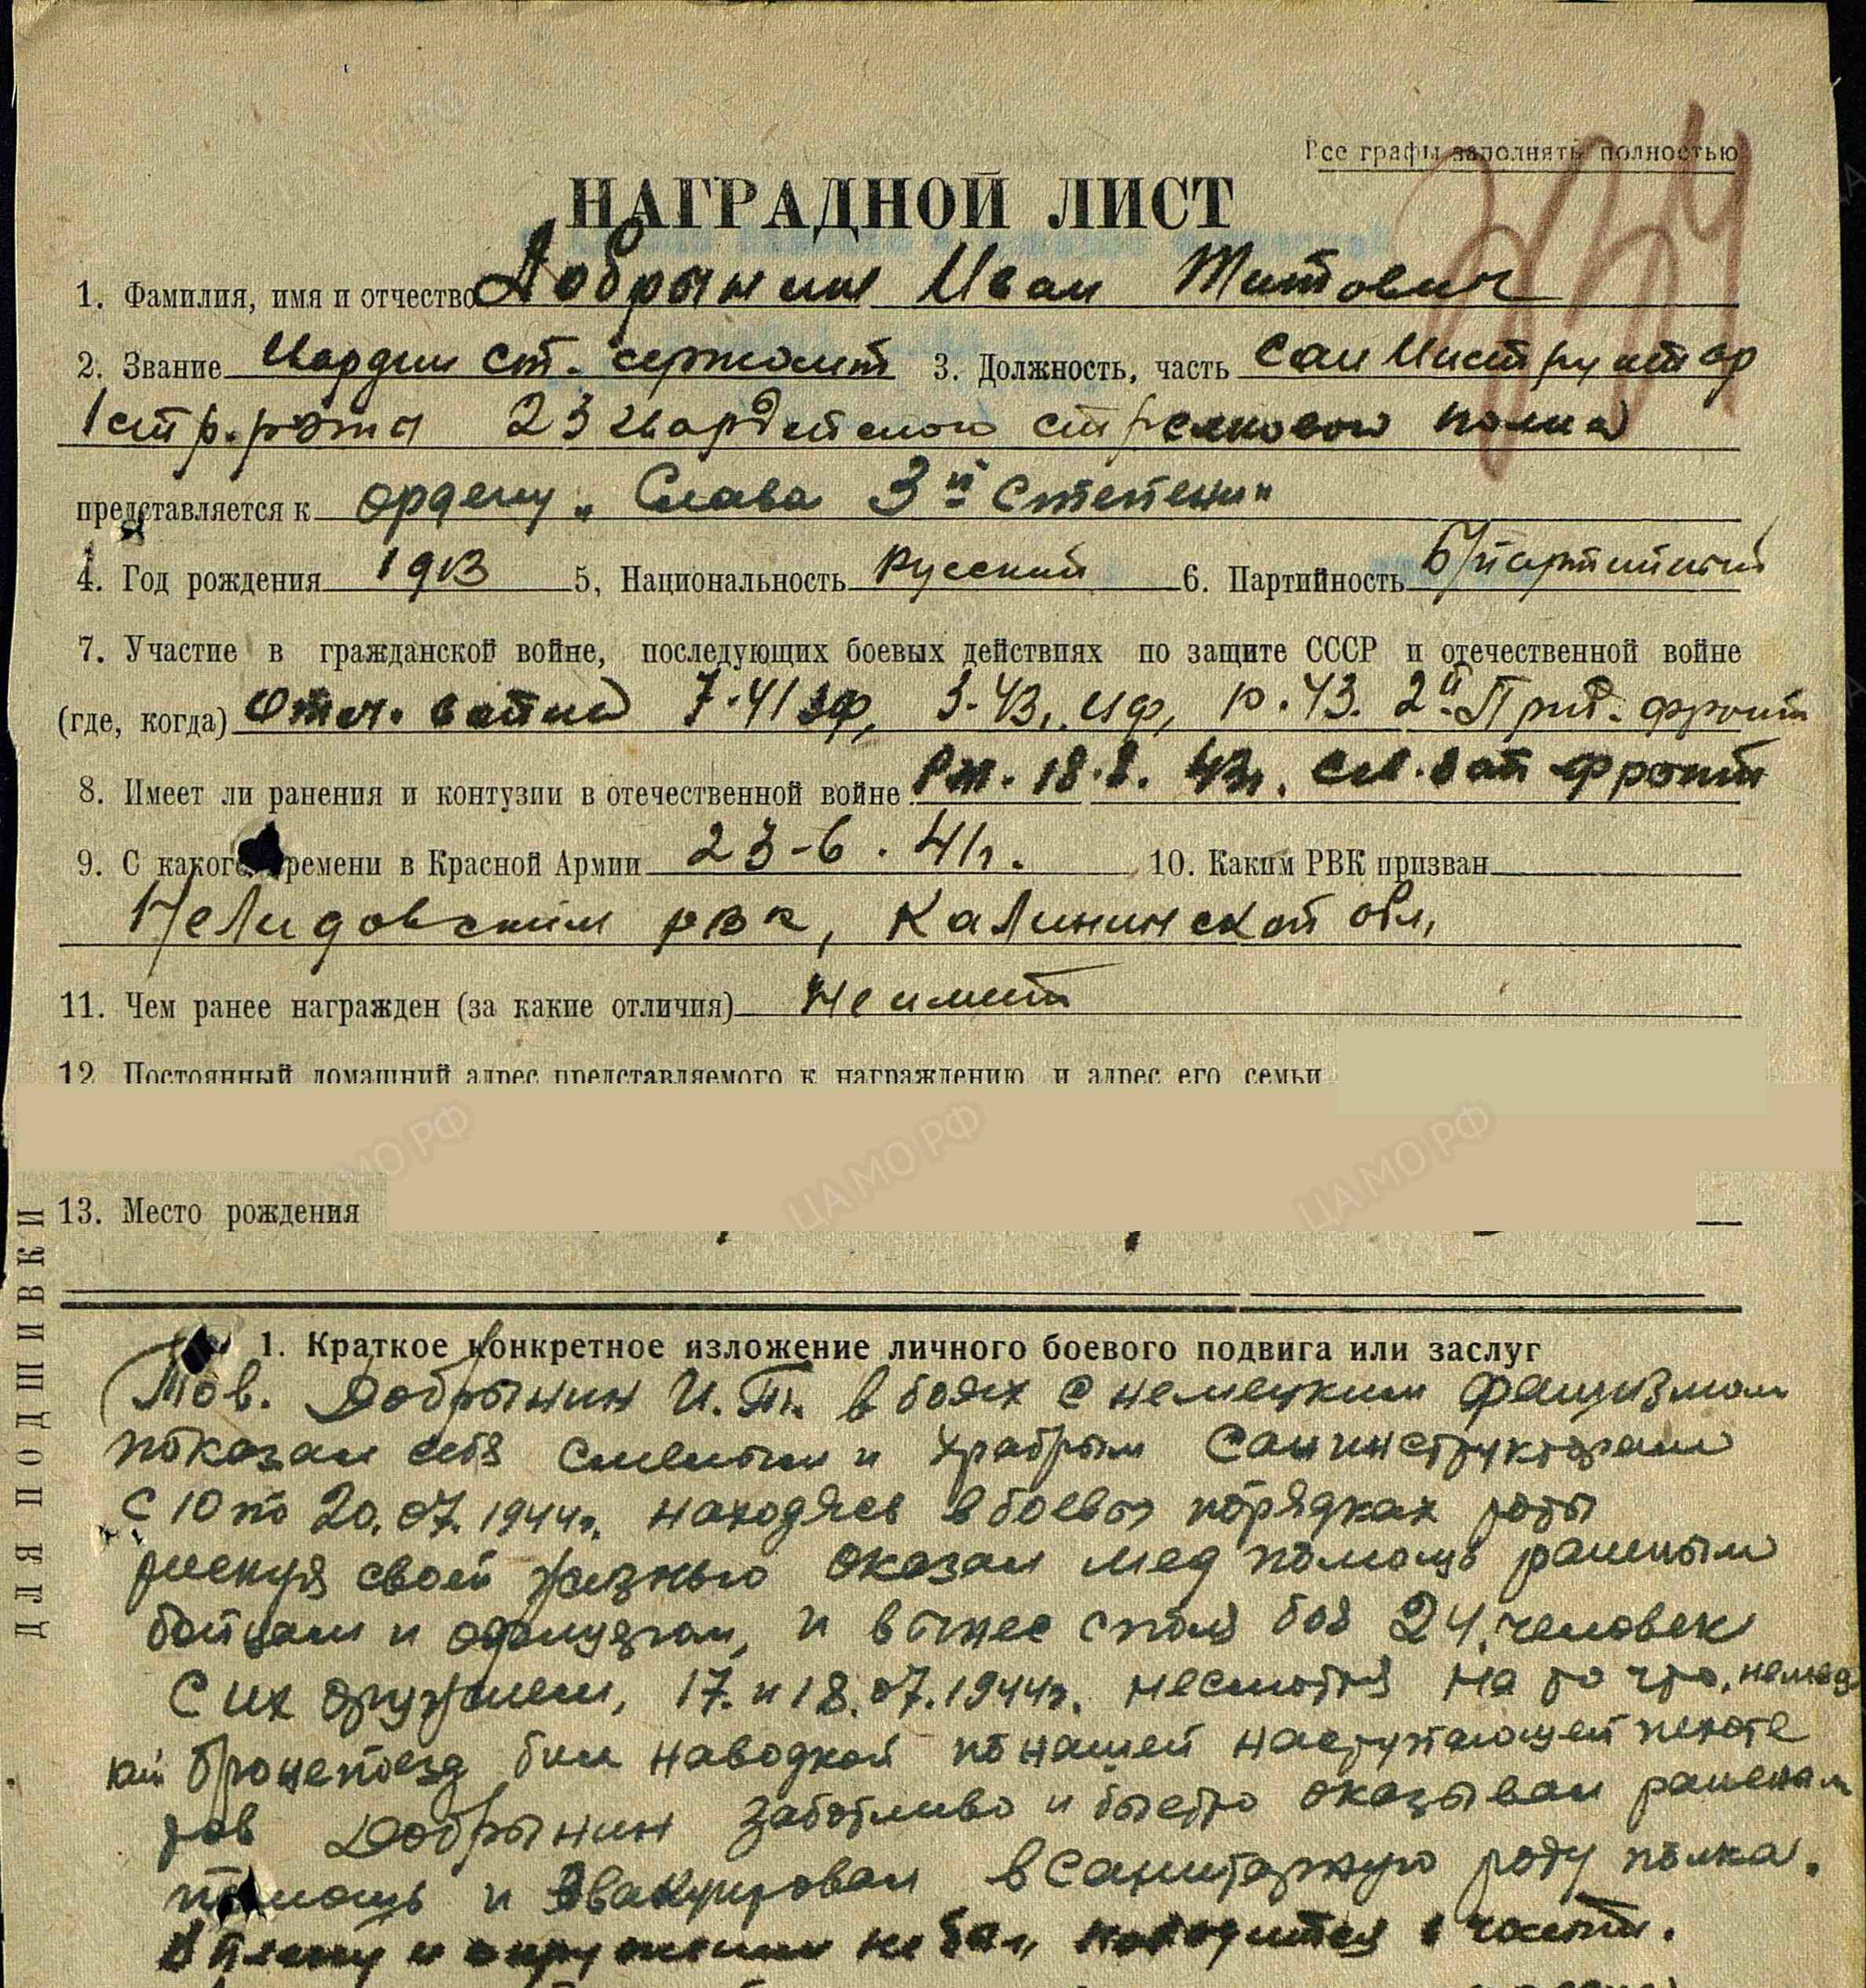 Все графы заполнять полностью
334
НАГРАДНОЙ ЛИСТ
1. Фамилия, имя и отчество Добрынин Иван Титович
2. Звание Гвардии ст. сержант 3. Должность, часть Сан Инструктор
1 стр. роты 23 гвардейского стрелкового полка
представляется к ордену „Слава 3й Степени"
4. Год рождения 1913 5, Национальность Русский 6. Партийность б/партийный
7. Участие в гражданской войне, последующих боевых действиях по защите СССР и отечественной войне
(где, когда) Отеч. война 7.41 зф, 3.43, 10.43. 2й Приб. фронт
8. Имеет ли ранения и контузии в отечественной войне 18.8. 43г. фронт
9. С какого времени в Красной Армии 23-6. 41г. 10. Каким РВК призван
Нелидовским рвк, Калининской обл,
11. Чем ранее награжден (за какие отличия) Не имеет
12. Постоянный домашний адрес представляемого к награждению и адрес его семьи
13. Место рождения
ДЛЯ ПОДШИВКИ
1. Краткое конкретное изложение личного боевого подвига или заслуг
Тов. Добрынин И.Т. в боях с немецким фашизмом
показал себя смелым и храбрым Санинструктором
С 10 по 20.07.1944г. находясь в боевых порядках роты
рискуя своей жизнью оказал мед помощь раненым
бойцам и офицерам, и вынес с поля боя 24 человек
С их оружием, 17. и 18.07.1944г. несмотря на то что, немец
кий бронепоезд бил наводкой по нашей наступающей пехоте
тов Добрынин заботливо и быстро оказывал раненам
помощь и Эвакуировал в Санитарную роту полка.
В плену и окружении не был, находится в части.
ЦАМО РФ
ЦАМО РФ
ЦАМО РФ